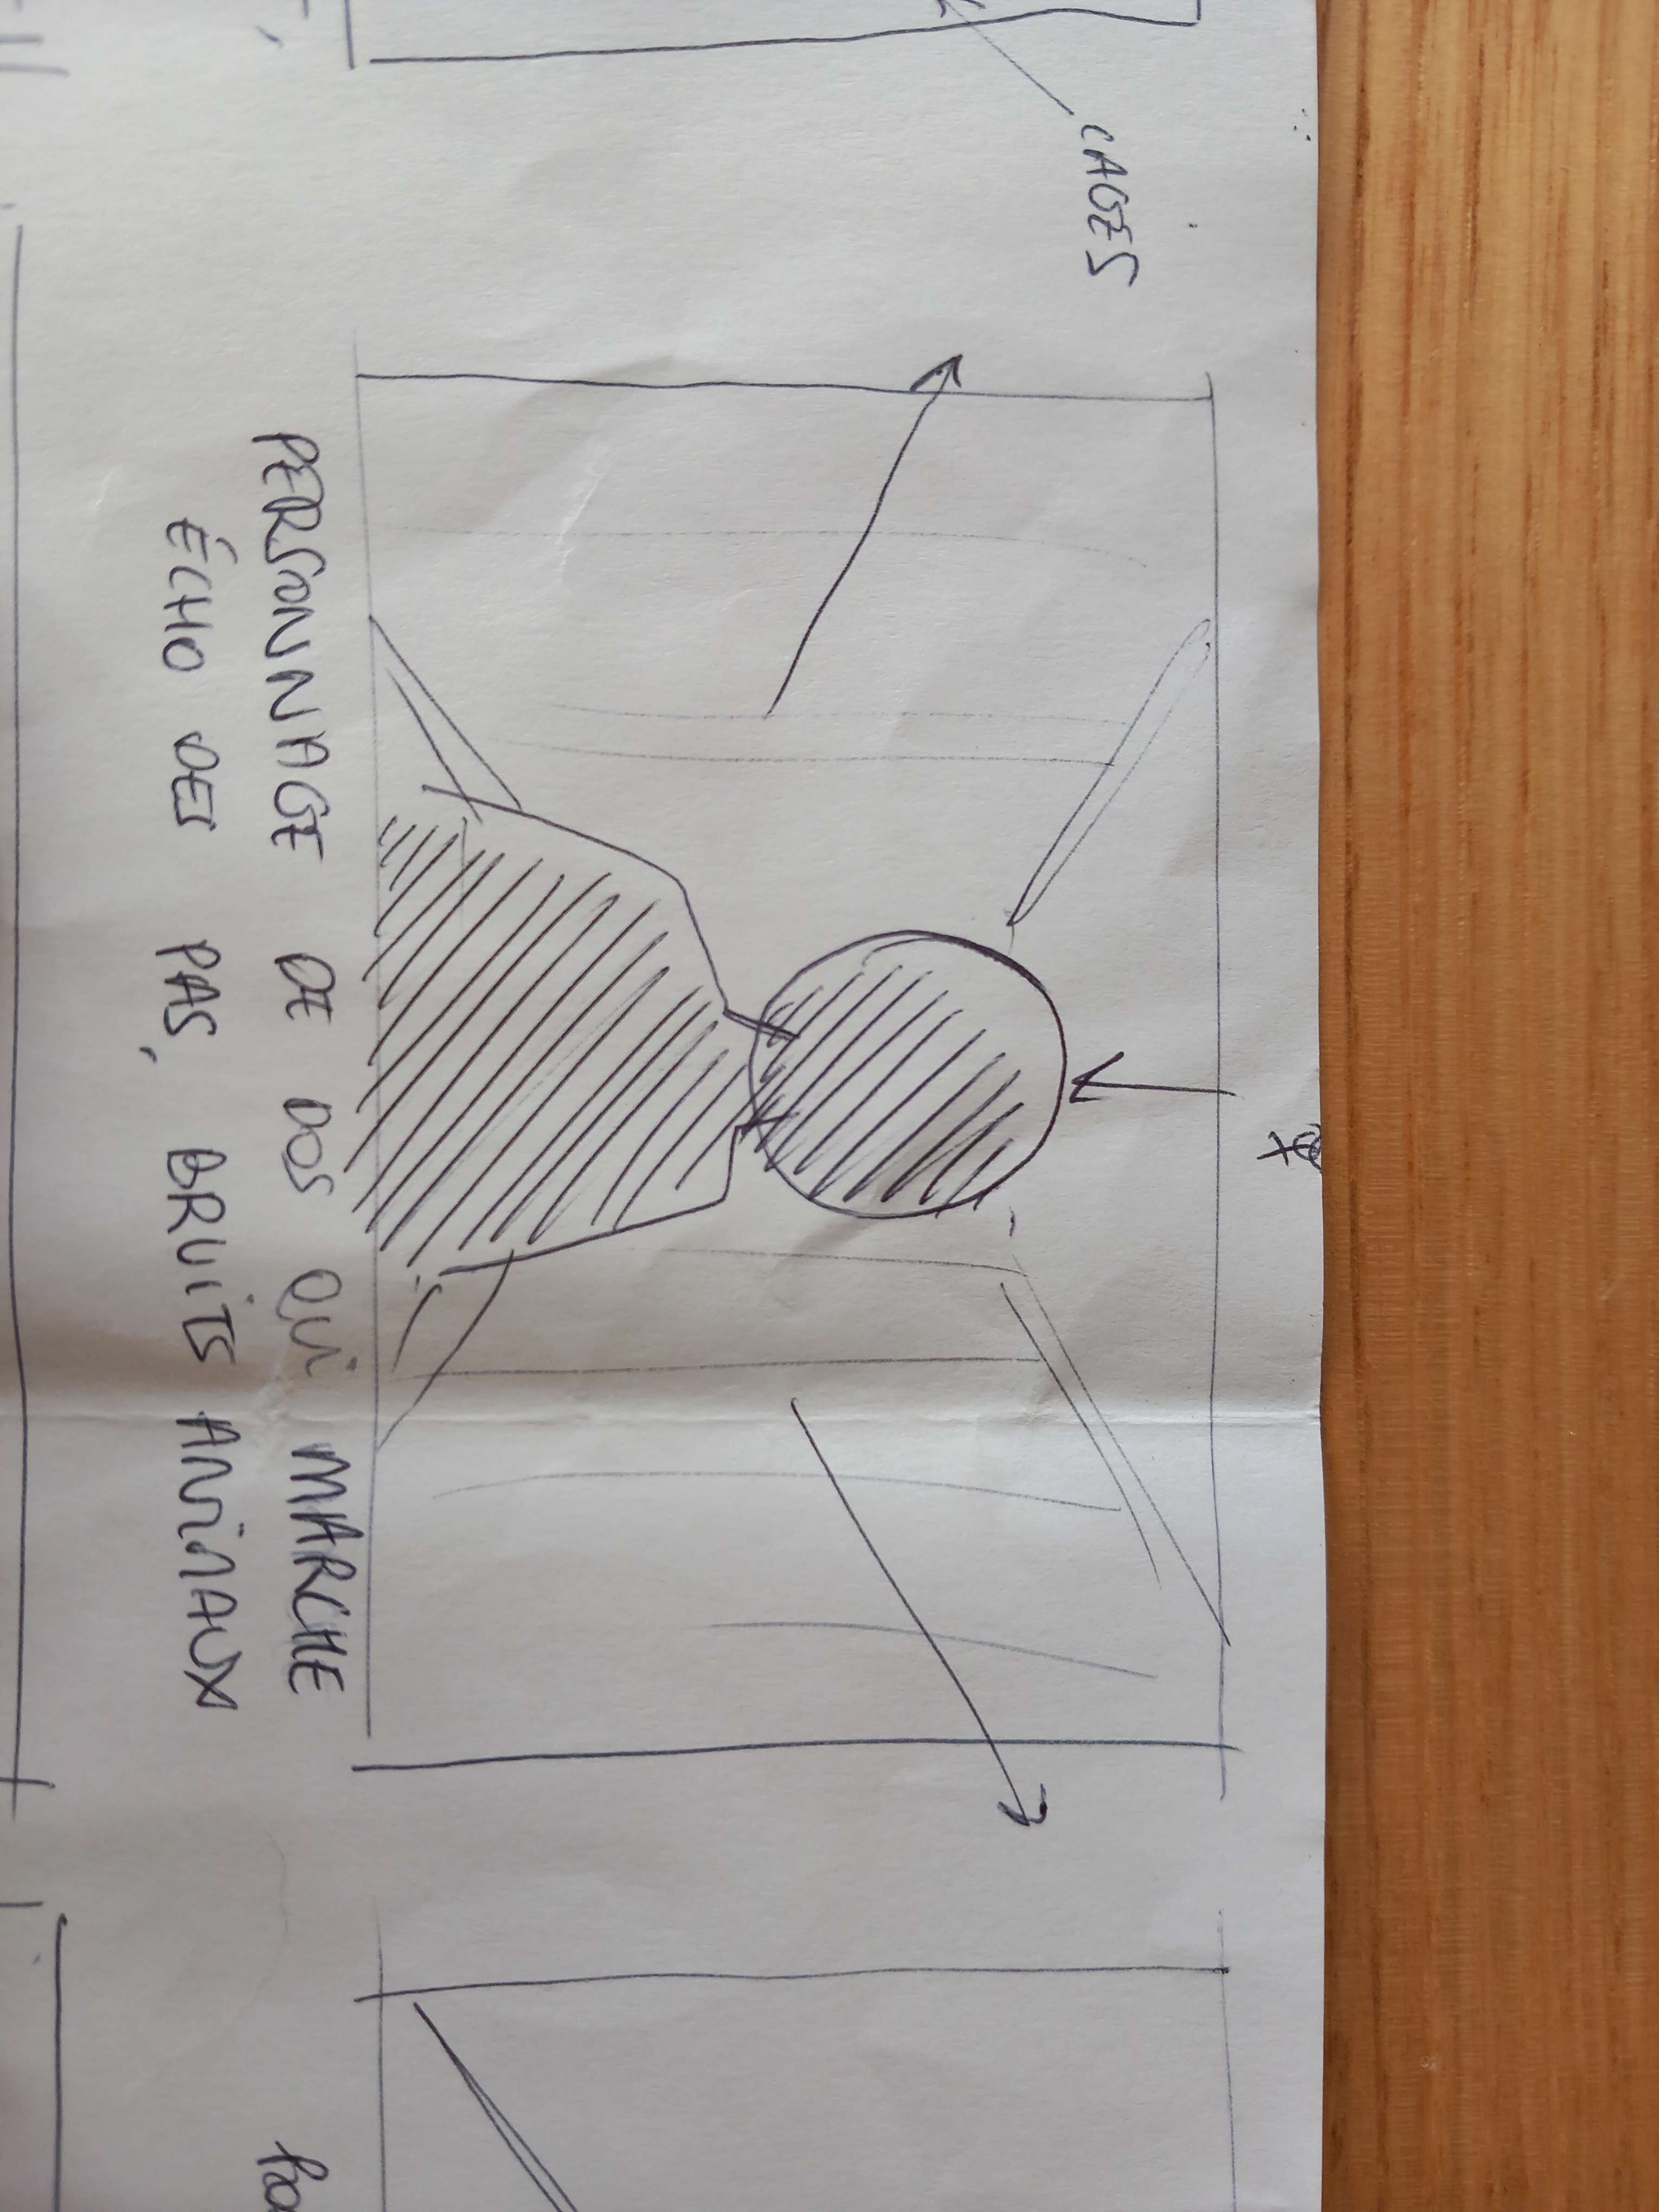 CAGES
PERSONNAGE DE DOS QUI MARCHE
ÉCHO DES PAS, BRUITS ANIMAUX